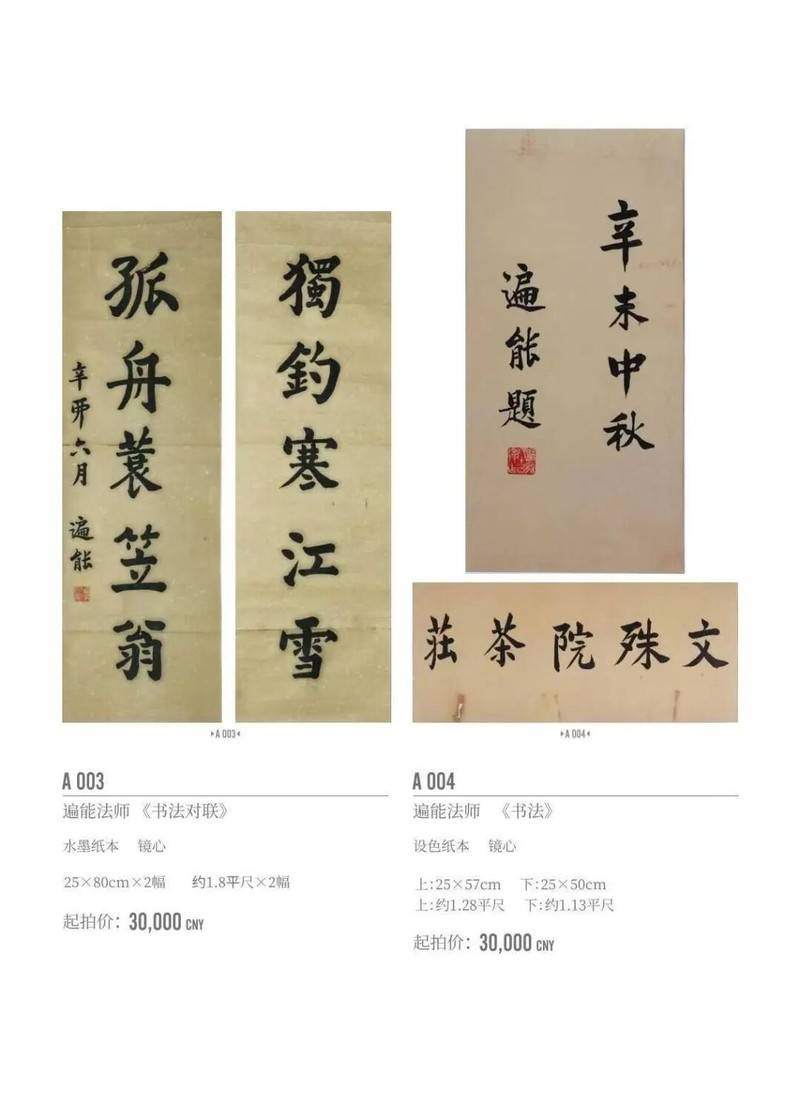 獨釣寒江雪
孤舟蓑笠翁
辛丣六月 遍能
辛未中秋
遍能題
文殊院茶莊
A 003
A 004
A 003
遍能法师 《书法对联》
水墨纸本 镜心
25×80cm×2幅 约1.8平尺×2幅
起拍价：30,000 CNY
A 004
遍能法师 《书法》
设色纸本 镜心
上：25×57cm 下：25×50cm
上：约1.28平尺 下：约1.13平尺
起拍价：30,000 CNY